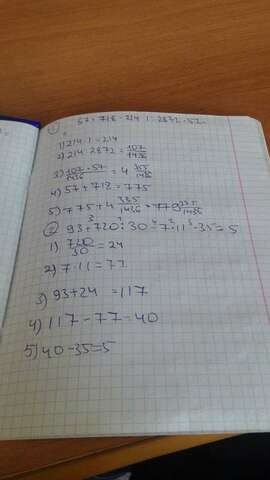 ① 57+718-214:1:2872·57=
1) 214:1=214
2) 214:2872=107/1436
3) 107·57/1436=4 355/1436
4) 57+718=775
5) 775+4 355/1436=779 355/1436
② 93+720:30-7·11-35=5
1) 720/30=24
2) 7·11=77
3) 93+24=117
4) 117-77=40
5) 40-35=5